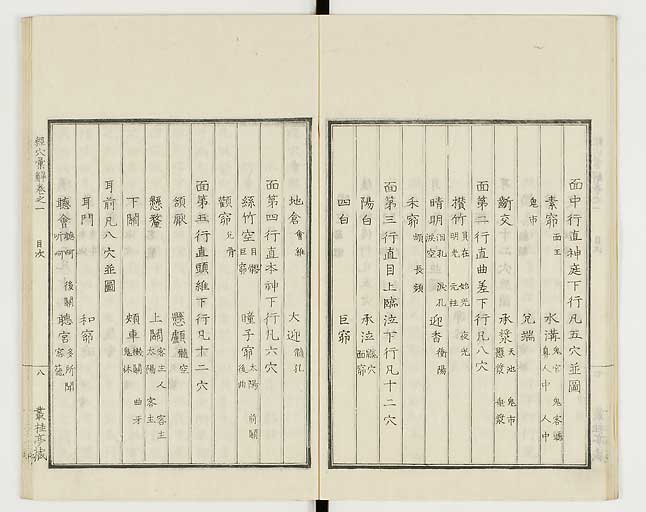 面中行直神庭下行凡五穴並圖
素窌 面王 水溝 鬼宮 鬼客廳 鬼市 人中
兌端
齗交 承漿 天池 鬼市 懸漿 垂漿
面第二行直曲差下行凡八穴
攅竹 員在 始光 夜光 明光 元柱
睛明 泪孔 淚孔 淚空 迎香 衝陽
禾窌 䪼 長頻
面第三行直目上臨泣下行凡十二穴
陽白 承泣 鼷穴 面窌
四白 巨窌
地倉 會維 大迎 髓孔
面第四行直本神下行凡六穴
絲竹空 目髎 巨窌 瞳子窌 太陽 前關 後曲
顴窌 兌骨
面第五行直頭維下行凡十二穴
頷厭 懸顱 髓空
懸釐 上關 客主人 客主 太陽
下關 頰車 機關 曲牙 鬼牀
耳前凡八穴並圖
耳門 和窌
聽會 聽呵 後關 聽宮 多所聞
經穴彙解卷之一 目次 八 叢桂亭藏